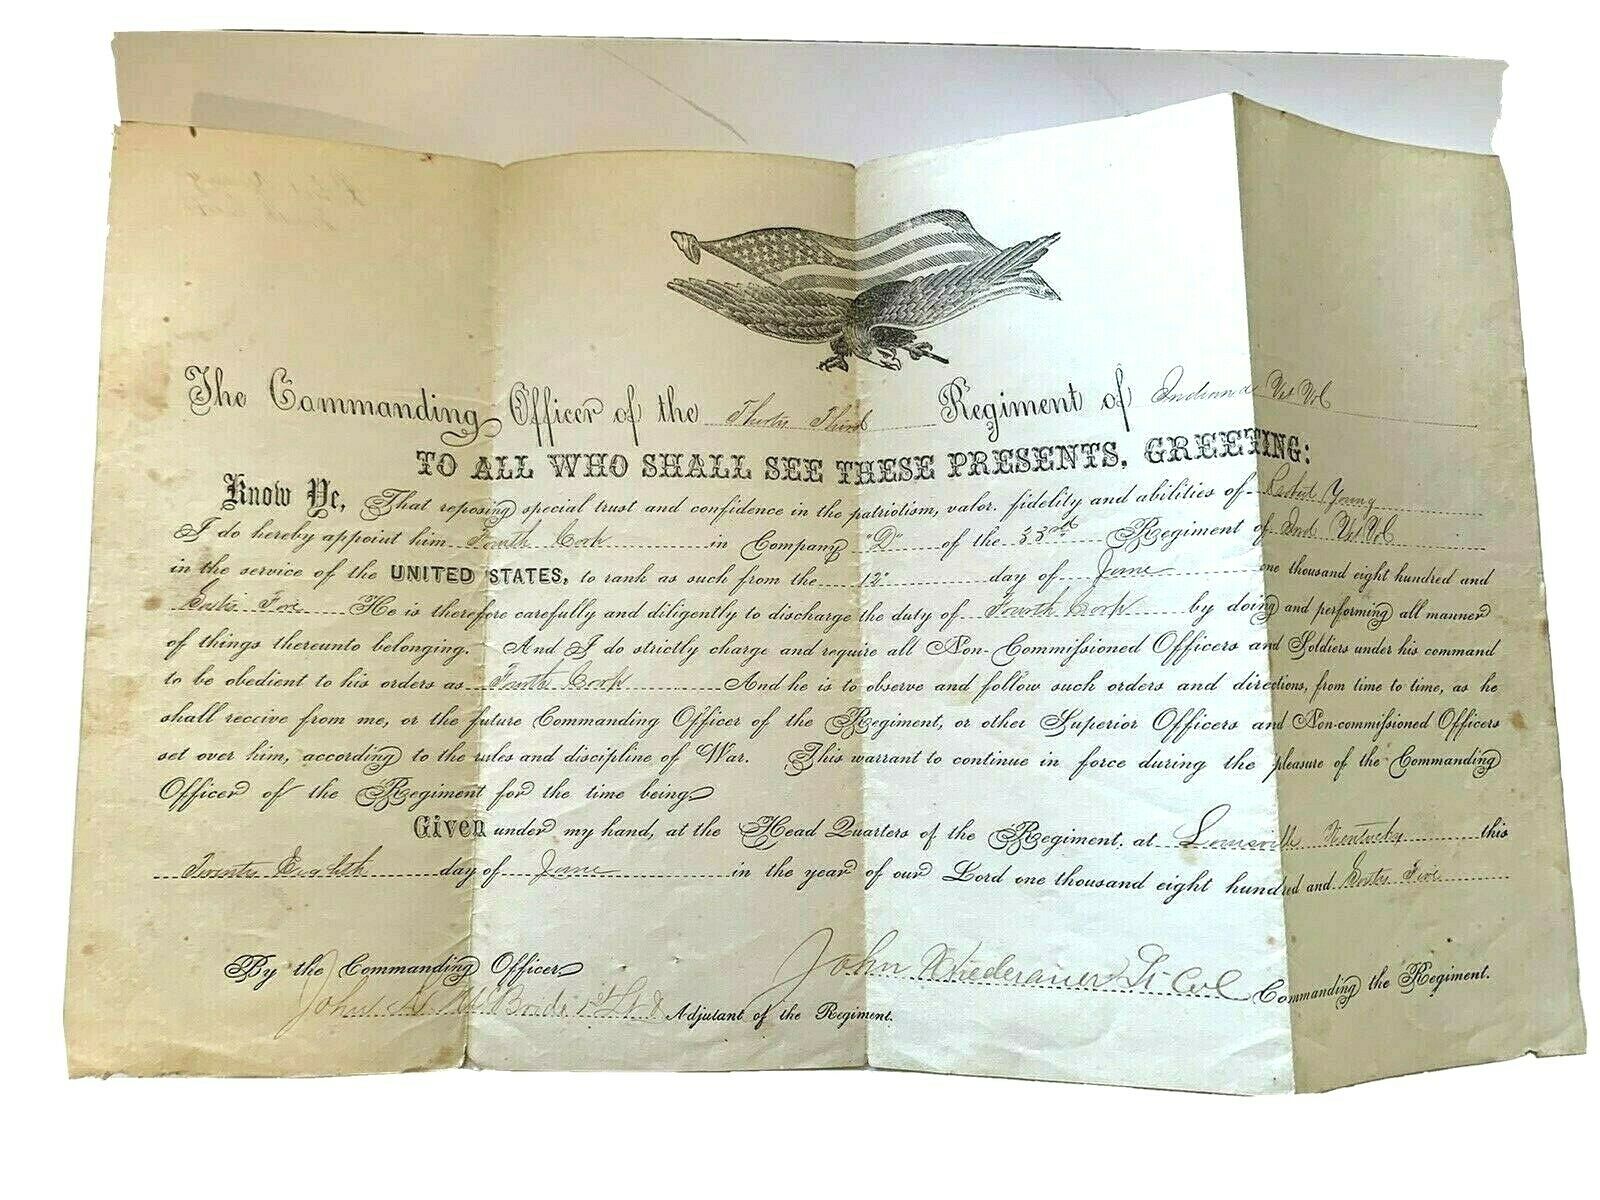 The Commanding Officer of the Thirty Third Regiment of Indiana Vet Vol
TO ALL WHO SHALL SEE THESE PRESENTS, GREETING:
Know Ye, That reposing special trust and confidence in the patriotism, valor, fidelity and abilities of Robert Young
I do hereby appoint him Fourth Corp in Company "D" of the 33rd Regiment of Ind Vet Vol
in the service of the UNITED STATES, to rank as such from the 12" day of June one thousand eight hundred and
Sixty Five He is therefore carefully and diligently to discharge the duty of Fourth Corp by doing and performing all manner
of things thereunto belonging. And I do strictly charge and require all Non-Commissioned Officers and Soldiers under his command
to be obedient to his orders as Fourth Corp And he is to observe and follow such orders and directions, from time to time, as he
shall receive from me, or the future Commanding Officer of the Regiment, or other Superior Officers and Non-commissioned Officers
set over him, according to the rules and discipline of War. This warrant to continue in force during the pleasure of the Commanding
Officer of the Regiment for the time being.
Given under my hand, at the Head Quarters of the Regiment, at Louisville Kentucky this
Twenty Eighth day of June in the year of our Lord one thousand eight hundred and Sixty Five
By the Commanding Officer,
John Lt Col Commanding the Regiment.
John 1st Lt & Adjutant of the Regiment.